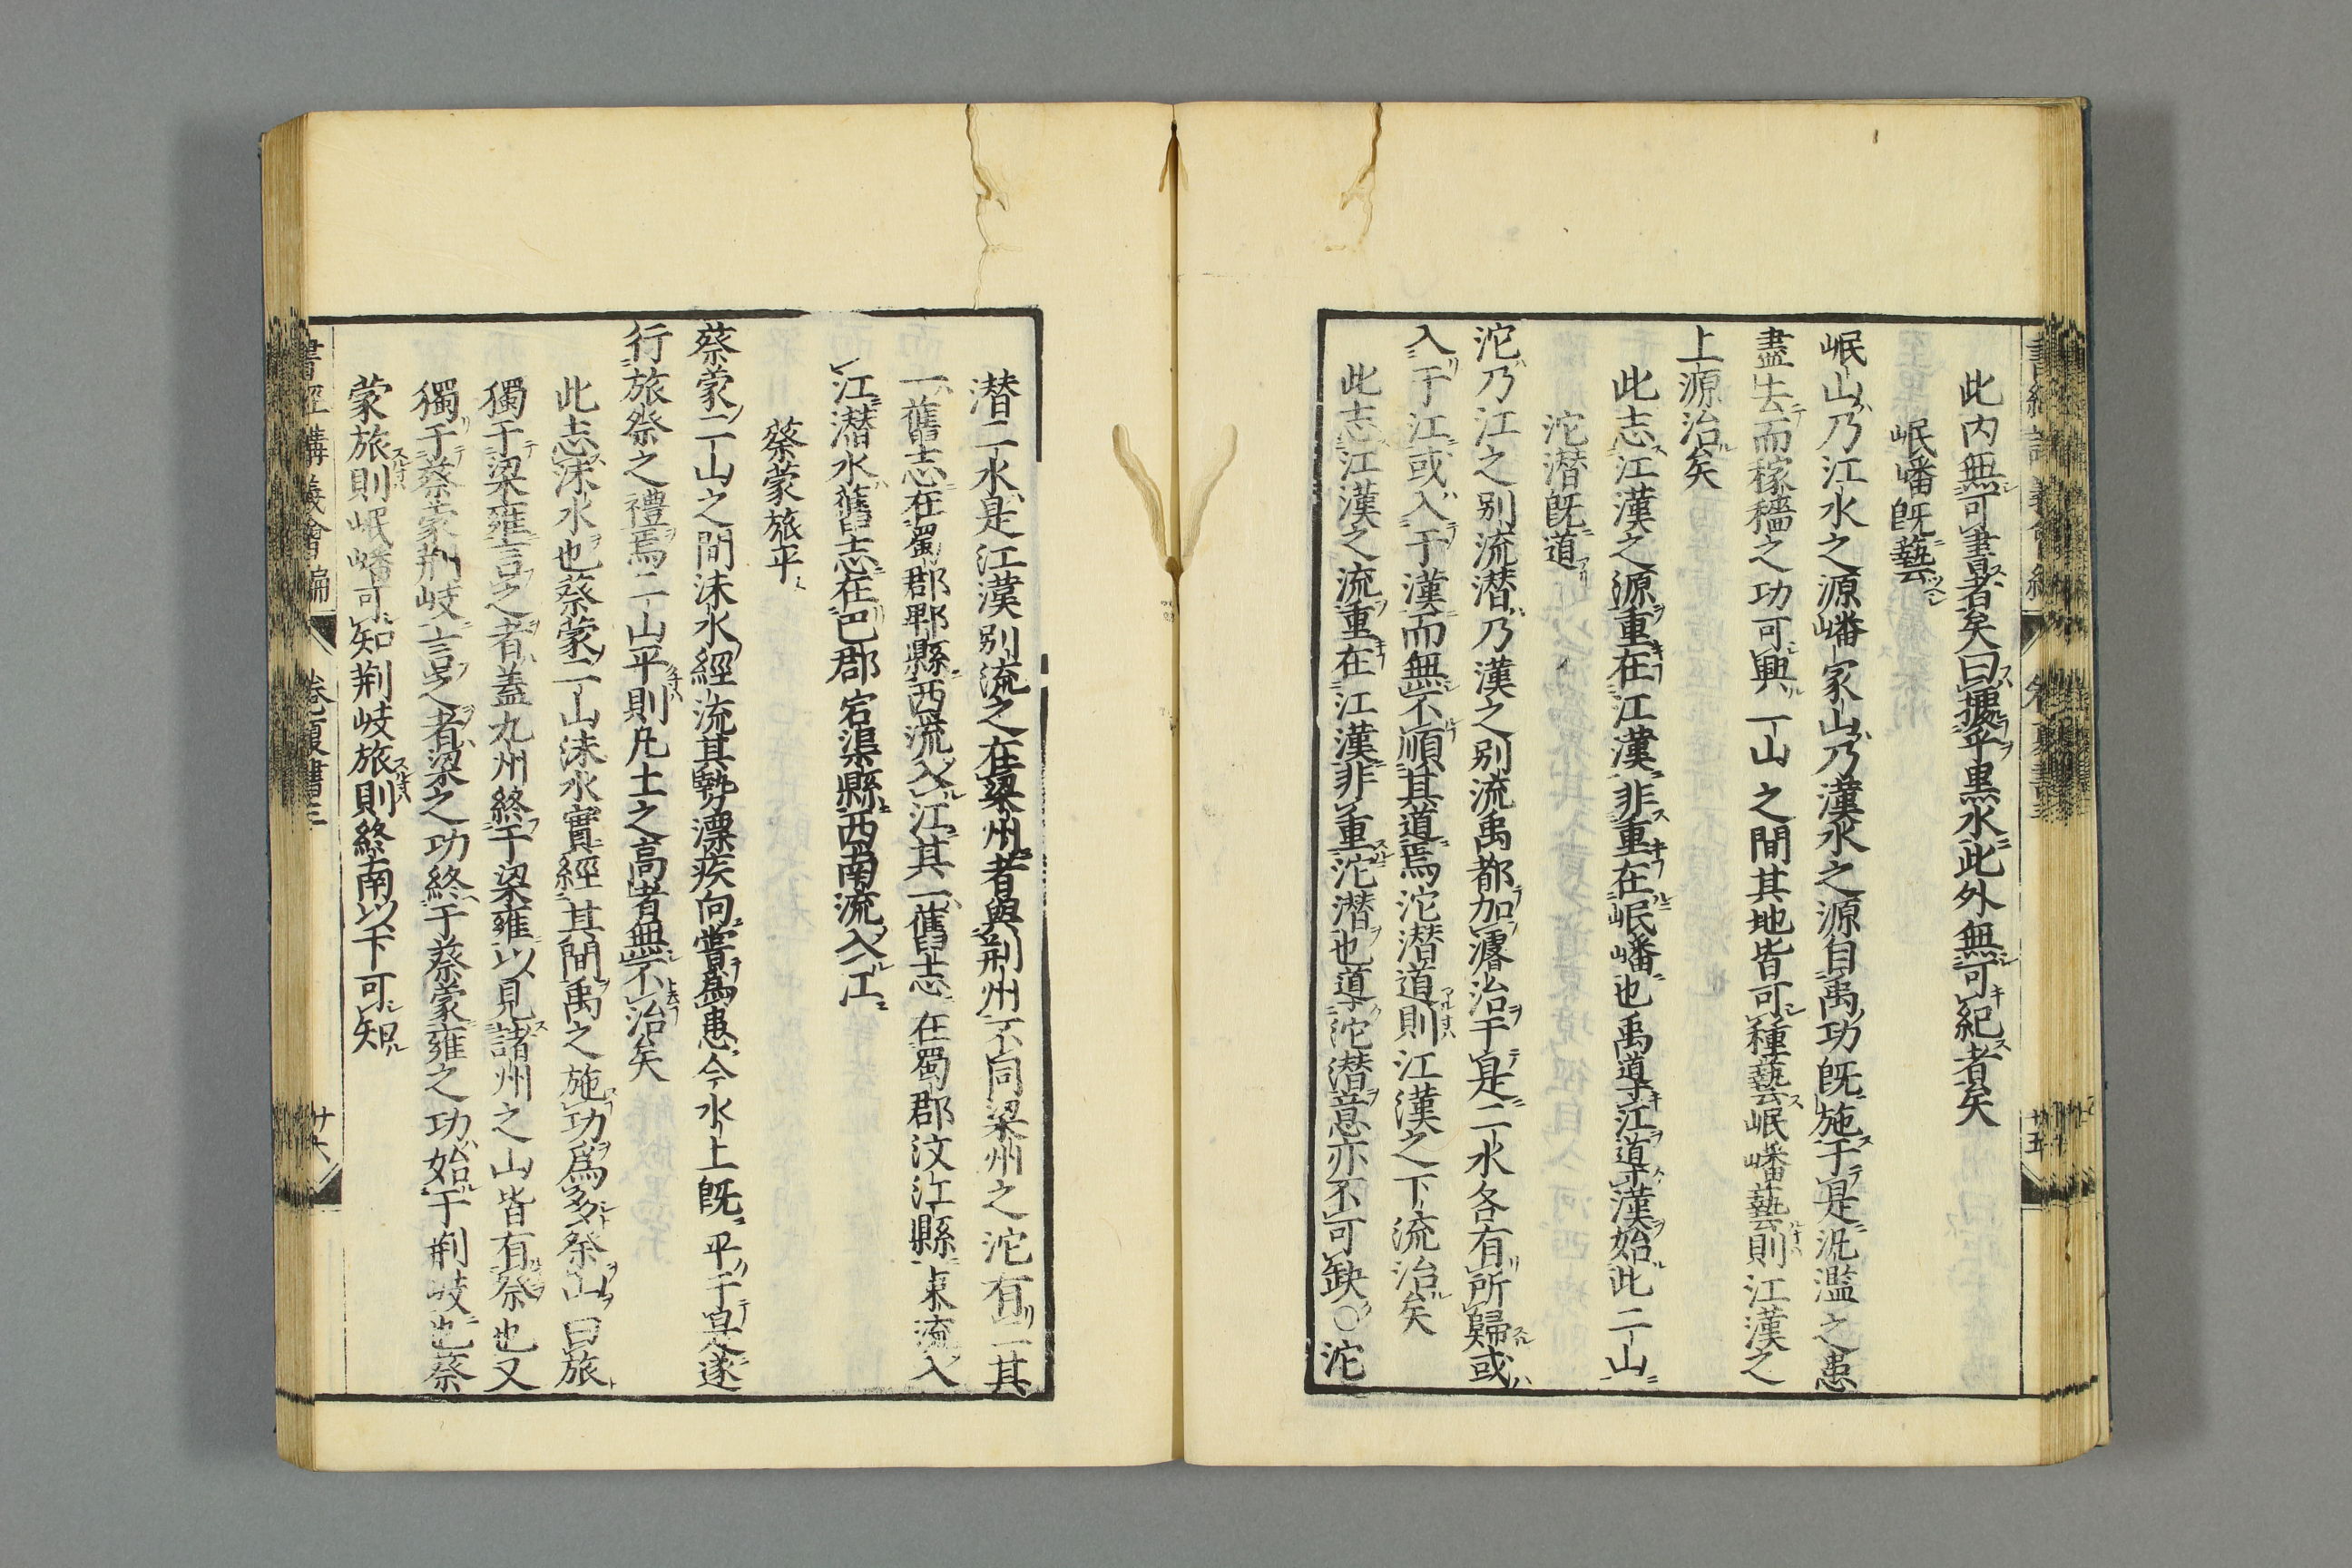 此内無可書者矣曰據乎黒水此外無可紀者矣
岷嶓既藝
岷山乃江水之源嶓冢山乃漢水之源自禹功既施于是泛濫之患
盡去而稼穡之功可興二山之間其地皆可種藝岷嶓藝則江漢之
上源治矣
此志江漢之源重在江漢非重在岷嶓也禹導江導漢始此二山
沱潜既道
沱乃江之别流潜乃漢之别流禹都加濬治于是二水各有所歸或
入于江或入于漢而無不順其道焉沱潜道則江漢之下流治矣
此志江漢之流重在江漢非重沱潜也導沱潜意亦不可缺○沱
潜二水是江漢别流之在梁州者與荆州不同梁州之沱有二其
一舊志在蜀郡郫縣西流入江其一舊志在蜀郡汶江縣東流入
江潜水舊志在巴郡宕渠縣西南流入江
蔡蒙旅平
蔡蒙二山之間沫水經流其勢漂疾向嘗爲患今水土既平于是遂
行旅祭之禮焉二山平則凡土之高者無不治矣
此志沫水也蔡蒙二山沫水實經其間禹之施功爲多祭山曰旅
獨于梁雍言之者蓋九州終于梁雍以見諸州之山皆有祭也又
獨于蔡蒙荆岐言之者梁之功終于蔡蒙雍之功始于荆岐也蔡
蒙旅則岷嶓可知荆岐旅則終南以下可知
書經講義會編
卷夏書三
廿六